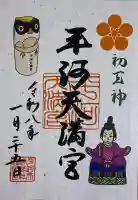 初天神
平河天満宮
令和八年
一月二十五日